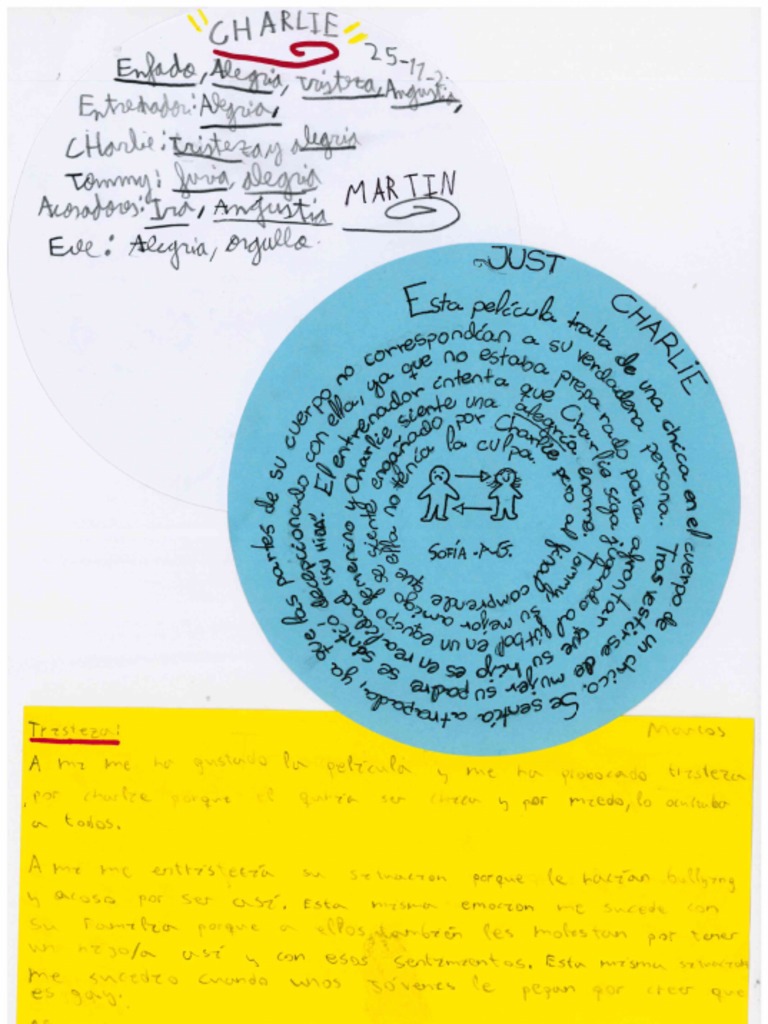 "CHARLIE"
25-11-2
Enfado, Alegria, tristeza, Angustia,
Entrenador: Alegria,
CHarlie: tristeza y alegria
Tommy: furia, alegria
Acosadores: Ira, Angustia
MARTIN
Eve: Alegria, orgullo.
JUST CHARLIE
Esta película trata de una chica en el cuerpo de un chico. Se sentía atrapada, ya que las partes de su cuerpo no correspondían a su verdadera persona. Tras vestirse de mujer su padre se sintió decepcionado con ella, ya que no estaba preparado para afrontar que su hijo es en realidad "su hija". El entrenador intenta que Charlie siga jugando al fútbol en un equipo femenino y Charlie siente una alegría enorme. Tommy, su mejor amigo se siente engañado por Charlie pero al final comprende que ella no tenía la culpa.
SOFÍA
Tristeza:
Marcos
A mi me ha gustado la película y me ha provocado tristeza
por charlie porque el quería ser chica y por miedo, lo ocultaba
a todos.
A mi me entristecía su situación porque le hacían bullying
y acoso por ser así. Esta misma emoción me sucede con
su familia porque a ellos también les molestan por tener
un hijo/a así y con esos sentimientos. Esta misma situación
me sucedió cuando unos jóvenes le pegan por creer que
es gay.